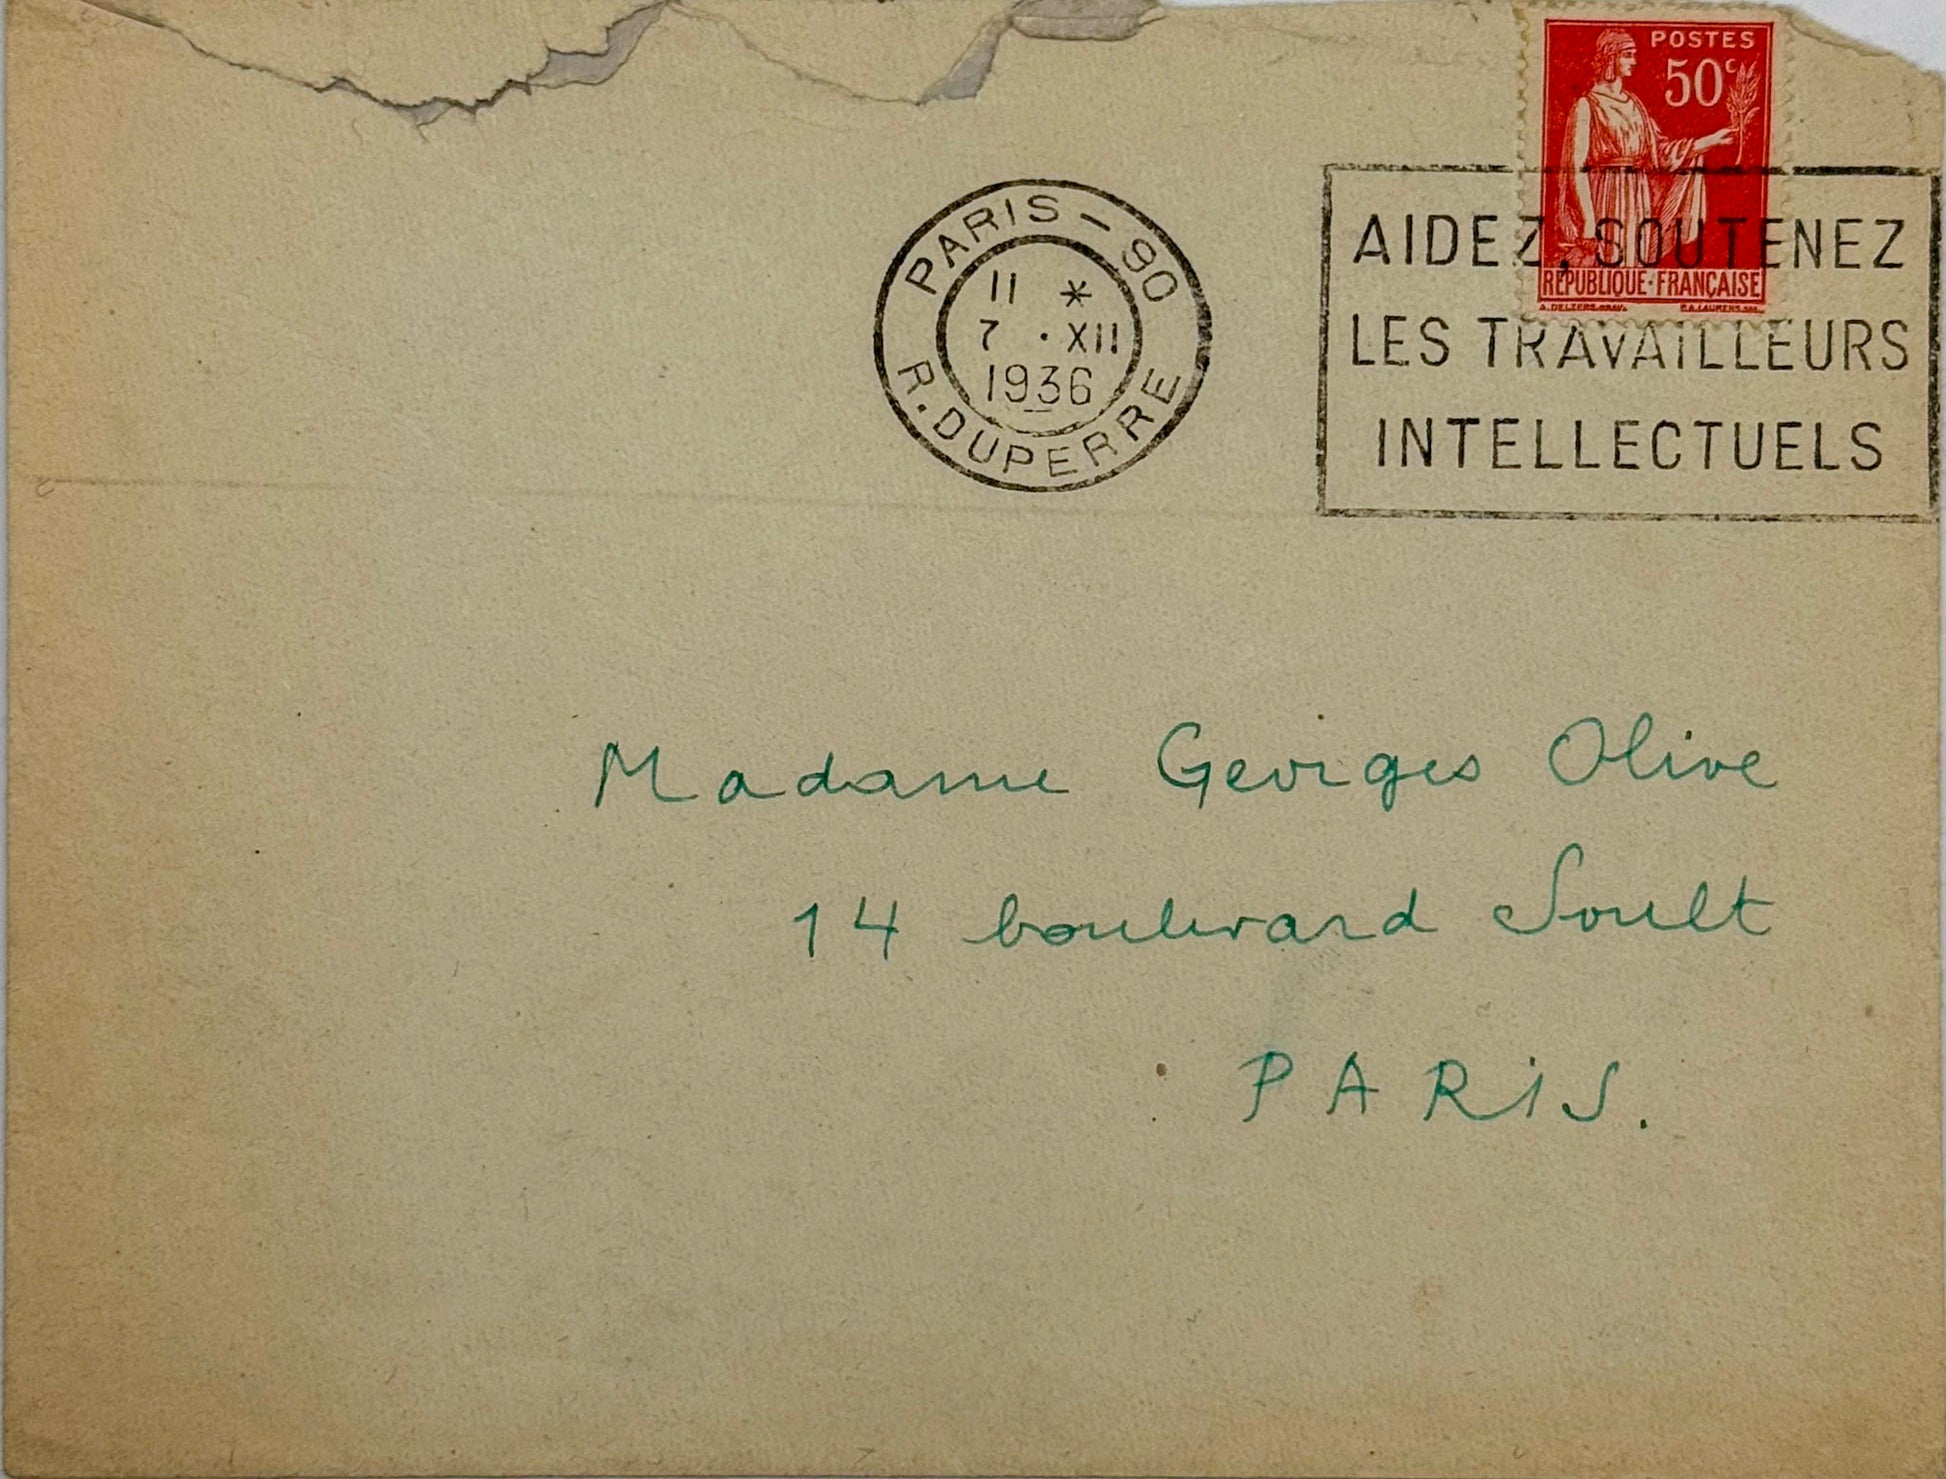 POSTES
50c
RÉPUBLIQUE·FRANÇAISE
PARIS - 90
11 *
7 · XII
1936
R. DUPERRE
AIDEZ, SOUTENEZ
LES TRAVAILLEURS
INTELLECTUELS
Madame Georges Olive
14 boulevard Soult
PARIS.